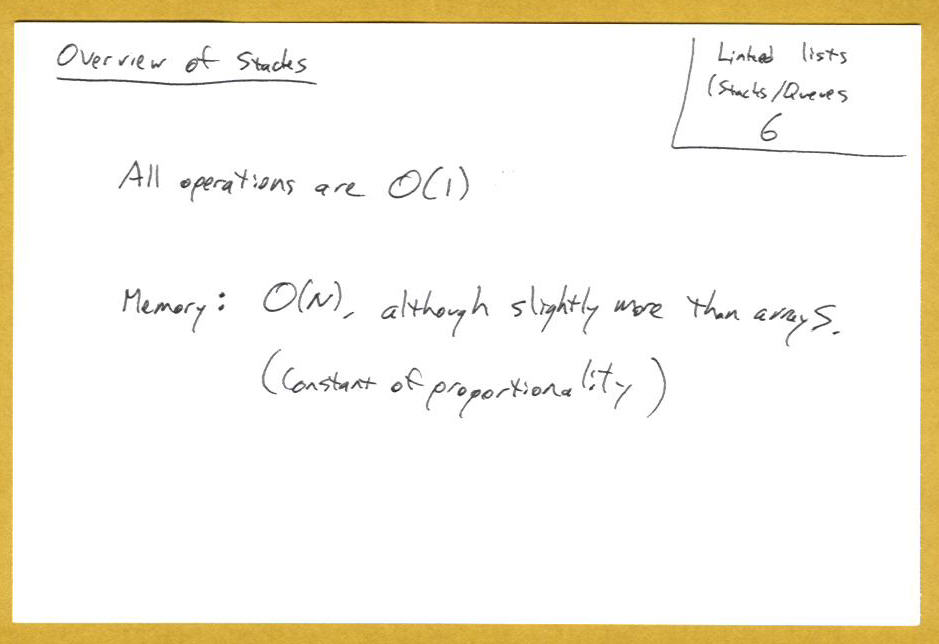 Overview of Stacks
Linked lists
(Stacks/Queues
6
All operations are O(1)
Memory: O(N), although slightly more than arrays.
(Constant of proportionality)